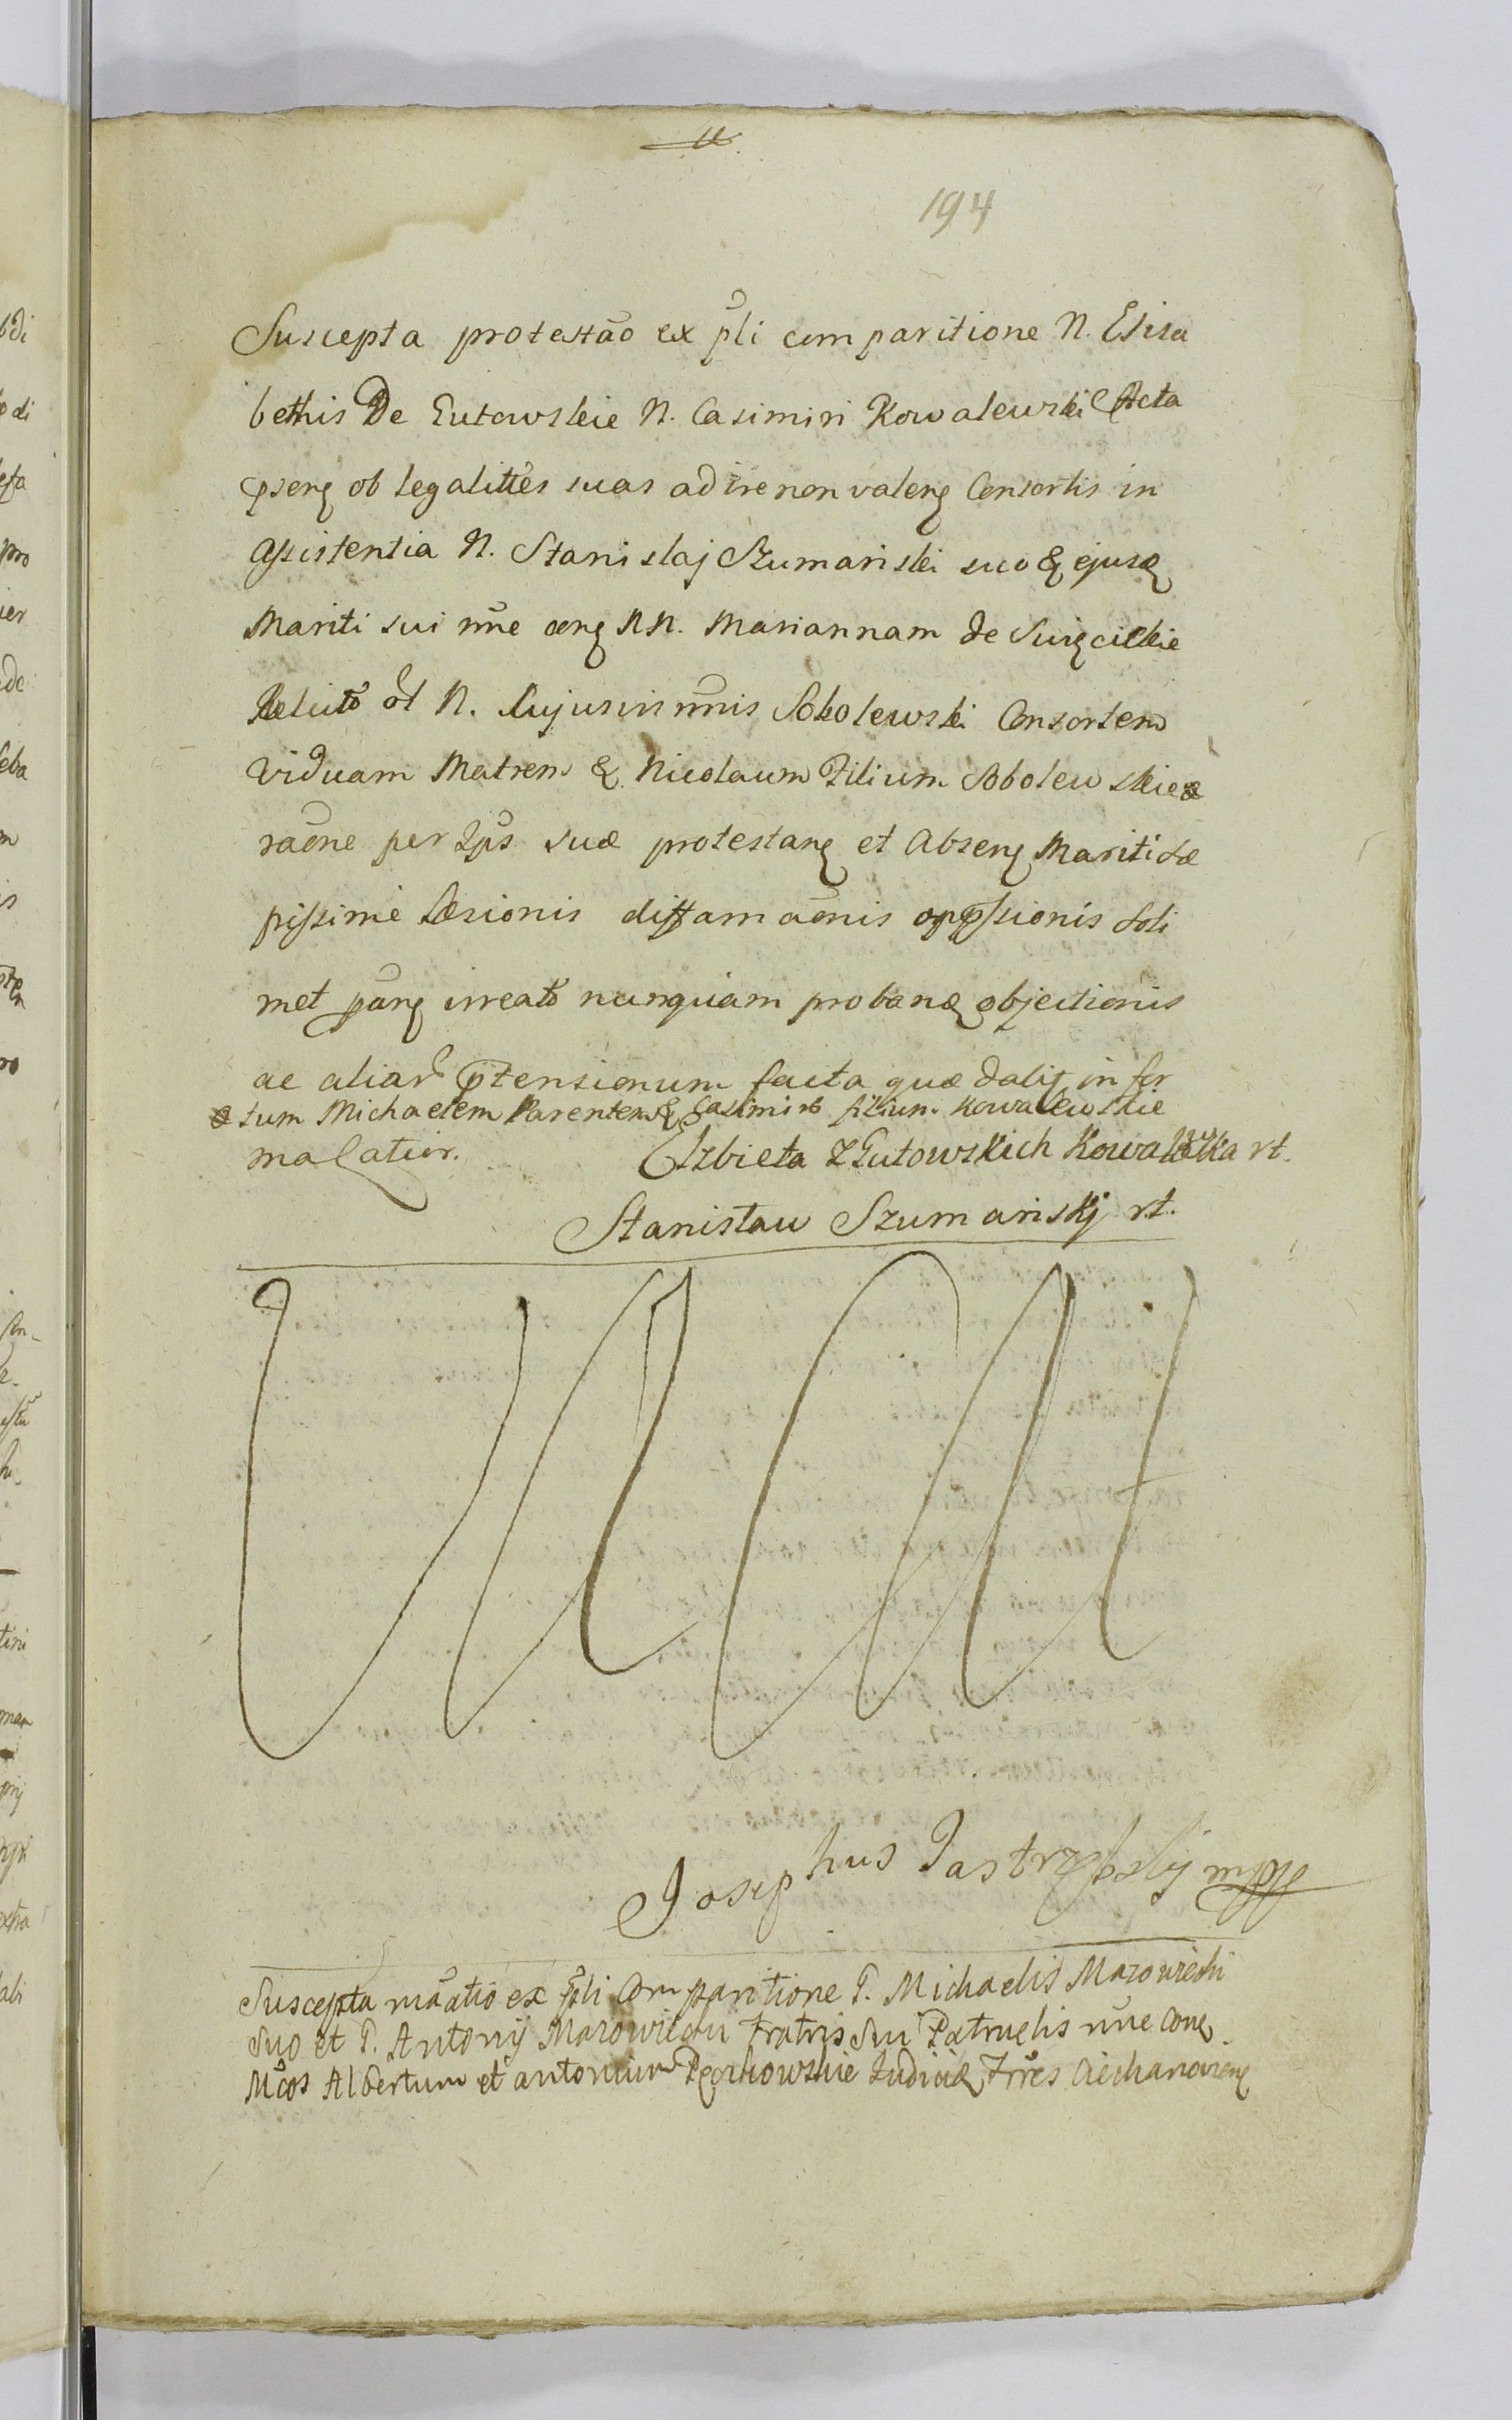 194
Suscepta protestão ex pli comparitione N. Elisa
bethis De Gutowskie N. Casimiri Kowalewski Acta
pñserꝫ ob legalittes suas adire non valenꝫ Consortis in
assistentia N. Stanislaj Szumański suo & ejusꝫ
Mariti sui nñe NN. Mariannam de Swięcickie
N. Cujusvis nñis Sokolewski Consortem
viduam Matrem & Nicolaum Filium Sobolewskie
raõne per suæ protestanꝫ et Absenꝫ Mariti sæ
pissimè Læsionis diffamaõnis oppssionis soli
met irreatõ nunquam probanꝫ objectionis
ac aliar ptensionum facta quæ in for
tum Michaelem Parentem & Casimirũ filium Kowalewskie
malatur. Elzbieta z Gutowskich Kowalewska rt.
Stanisław Szumański rt.
Josephus Jastrzębski mpp
Suscepta mãatio ex pli Comparitione G. Michaelis Mazowiecki
suo et G. Antonij Mazowiecki Fratris sui Patruelis nñe
Mcos Albertum et antonium Frẽs Ciechanovienꝫ